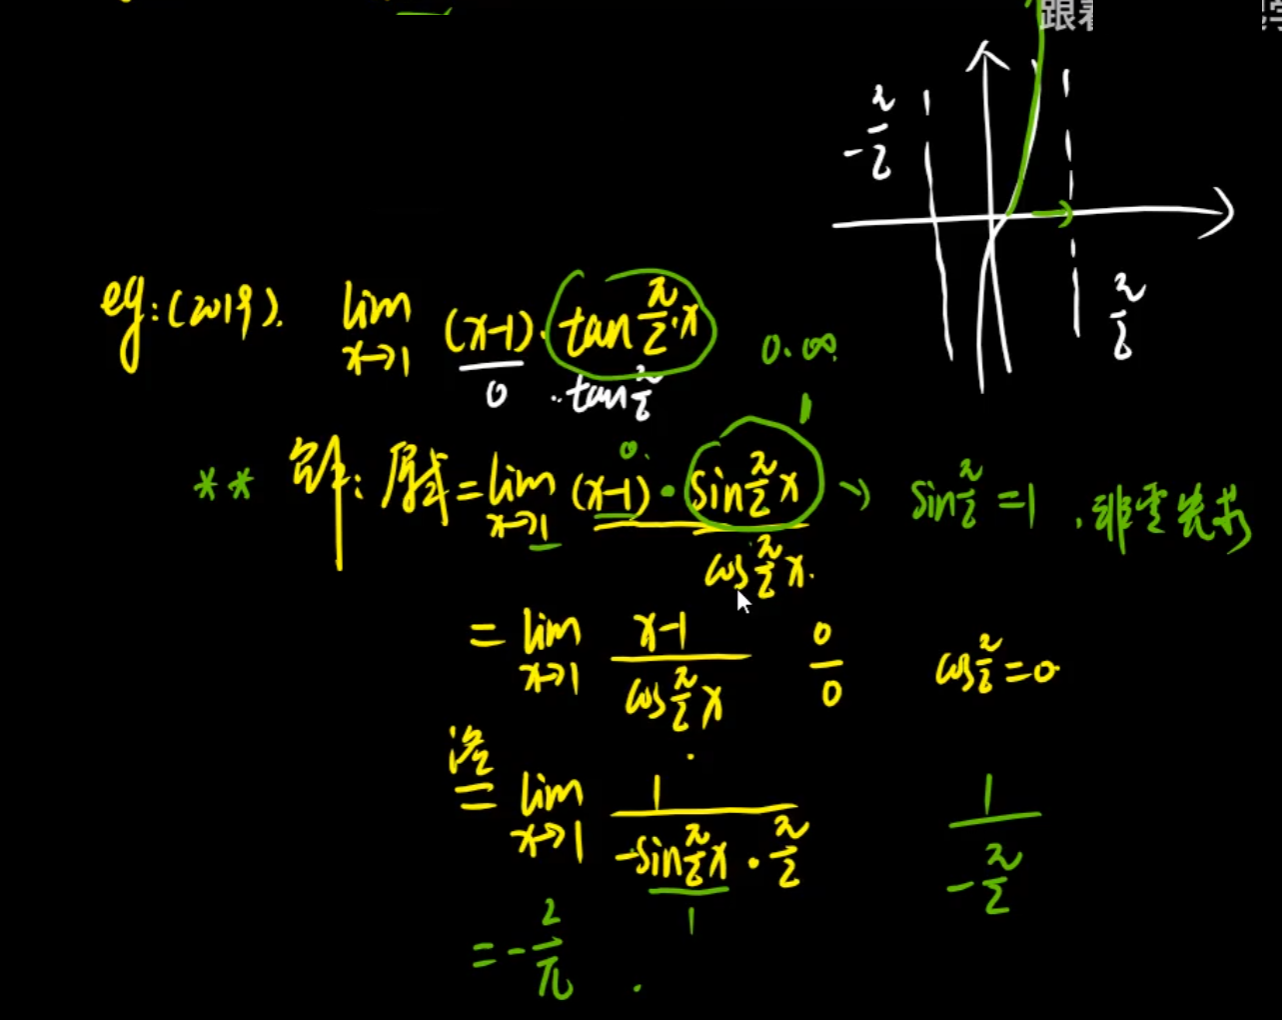 跟着
-π/2
π/2
eg:(2019). lim x→1 (x-1)·tan π/2·x
0 ·tan π/2
0·∞.
1
0.
** 解: 原式 = lim x→1 (x-1)·sin π/2 x / cos π/2 x. → sin π/2 = 1 , 非零先求
= lim x→1 x-1 / cos π/2 x 0/0 cos π/2 = 0
洛
= lim x→1 1 / -sin π/2 x · π/2 1 / -π/2
1
= -2/π .